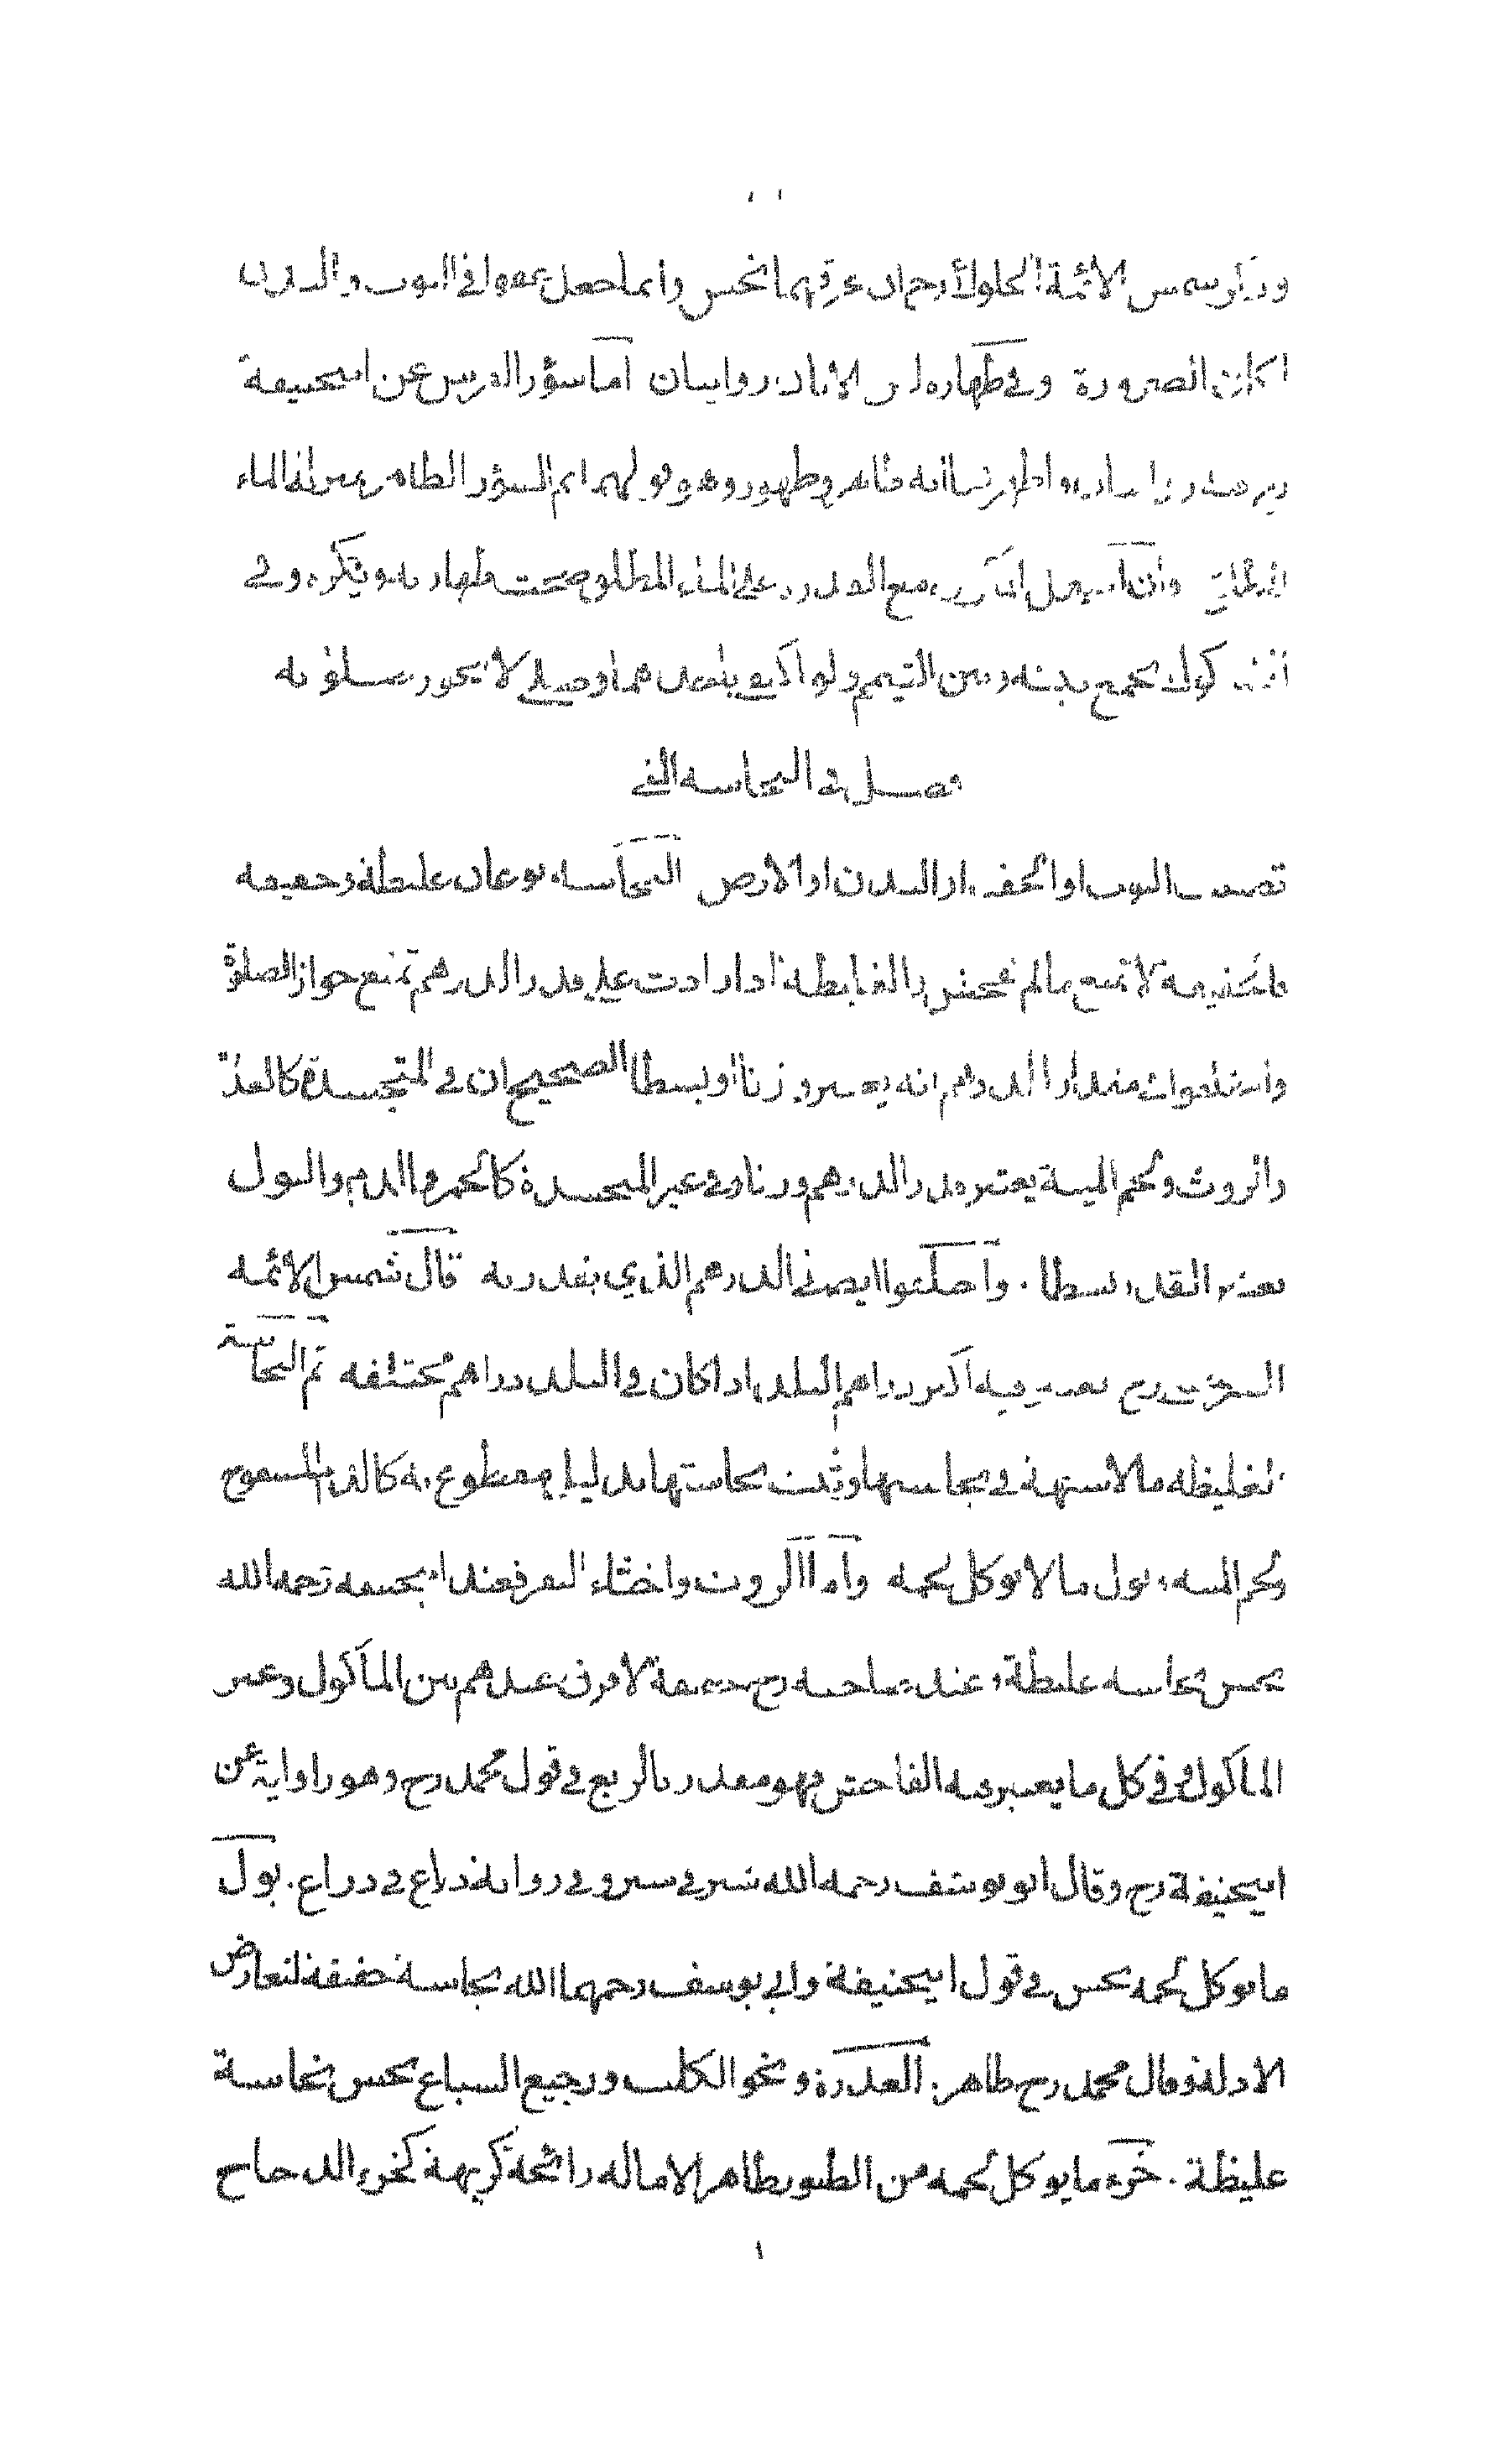 وذكر شمس الائمة الحلوائي رح ان عرقهما نجس وانما جعل عفوا في الثوب والبدن
لمكان الضرورة وفي طهارة لبن الاتان روايتان اما سؤر الفرس عن ابيحنيفة
فيه روايات واظهر انه طاهر وطهور وهو قولهما ثم السؤر الطاهر بمنزلة الماء
المكروه مع القدرة على الماء المطلق صحت طهارته ويكره وفي
المشكوك يجمع بينه وبين التيمم ولو اكتفى باحدهما وصلى لا تجوز صلوته
فصل في النجاسة التي
تصيب الثوب او الخف او البدن او الارض النجاسة نوعان غليظة وخفيفة
فالخفيفة لا تمنع مالم يفحش والغليظة اذا زادت على قدر الدرهم تمنع جواز الصلوة
واختلفوا في مقدار الدرهم انه يعتبر وزنا او بسطا الصحيح ان في المتجسدة كالعذرة
والروث ولحم الميتة يعتبر قدر الدرهم وزنا وفي غير المتجسدة كالخمر والدم والبول
يعتبر القدر بسطا . واختلفوا ايضا في الدرهم الذي يقدر به قال شمس الائمة
السرخسي رح يعتبر فيه اكبر دراهم البلد اذا كان في البلد دراهم مختلفة ثم النجاسة
الغليظة ما لا شبهة في نجاستها وثبتت نجاستها بدليل مقطوع به كالدم المسفوح
ولحم الميتة وبول ما لا يوكل لحمه واما الروث واخثاء البقر فعند ابيحنيفة رحمه الله
نجس نجاسة غليظة وعند صاحبيه رح خفيفة لا فرق عندهم بين الماكول وغير
الماكول وفي كل ما يعتبر فيه الفاحش فهو مقدر بالربع في قول محمد رح وهو رواية عن
ابيحنيفة رح وقال ابو يوسف رحمه الله شبر في شبر وفي رواية ذراع في ذراع . بول
ما يوكل لحمه نجس في قول ابيحنيفة وابي يوسف رحمهما الله نجاسة خفيفة لتعارض
الادلة وقال محمد رح طاهر . العذرة ونجو الكلب ورجيع السباع نجس نجاسة
غليظة . خرء ما يوكل لحمه من الطيور طاهر الا ماله رائحة كريهة كخرء الدجاج